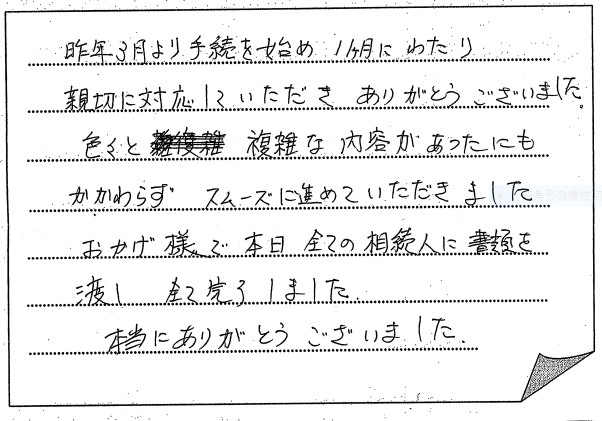 昨年3月より手続を始め 1ヶ月にわたり
親切に対応していただき ありがとうございました。
色々と 複雑な内容があったにも
かかわらず スムーズに進めていただきました
おかげ様で 本日 全ての相続人に書類を
渡し 全て完了しました。
本当にありがとうございました。